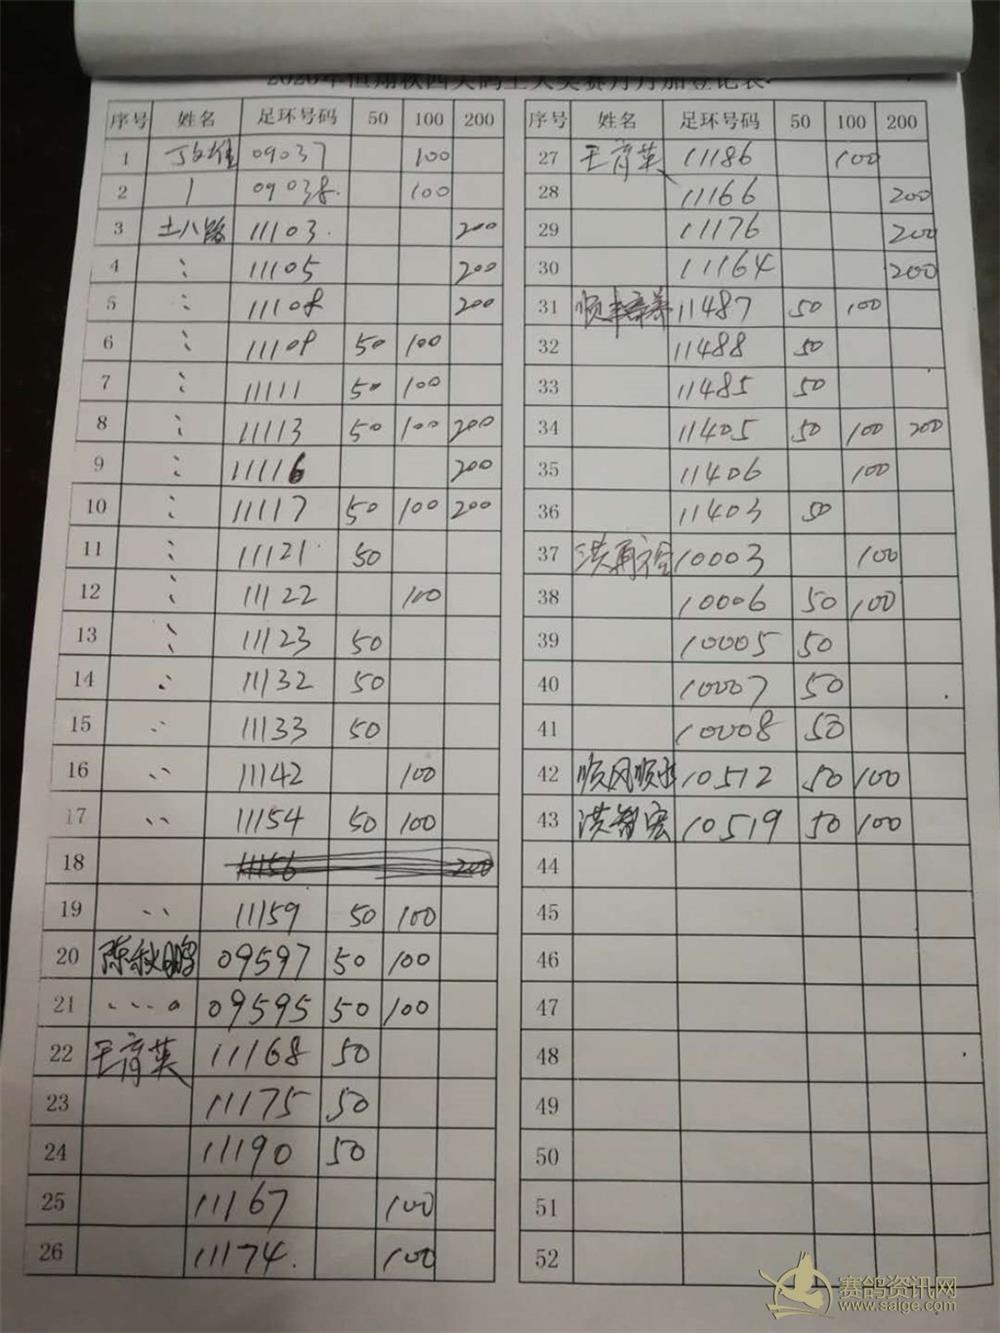 2020年恒翔秋西关鸽王大奖赛月月加登记表
序号 姓名 足环号码 50 100 200
1 09037 100
2 09038. 100
3 土八路 11103. 200
4 11105 200
5 11108 200
6 11109 50 100
7 11111 50 100
8 11113 50 100 200
9 11116 200
10 11117 50 100 200
11 11121 50
12 11122 100
13 11123 50
14 11132 50
15 11133 50
16 11142 100
17 11154 50 100
18 11156 200
19 11159 50 100
20 陈秋鹏 09597 50 100
21 09595 50 100
22 王育英 11168 50
23 11175 50
24 11190 50
25 11167 100
26 11174. 100
序号 姓名 足环号码 50 100 200
27 王育英 11186 100
28 11166 200
29 11176 200
30 11164 200
31 11487 50 100
32 11488 50
33 11485 50
34 11405 50 100 200
35 11406 100
36 11403 50
37 10003 100
38 10006 50 100
39 10005 50
40 10007 50
41 10008 50
42 10512 50 100
43 洪智宏 10519 50 100
44
45
46
47
48
49
50
51
52
赛鸽资讯网
www.saige.com